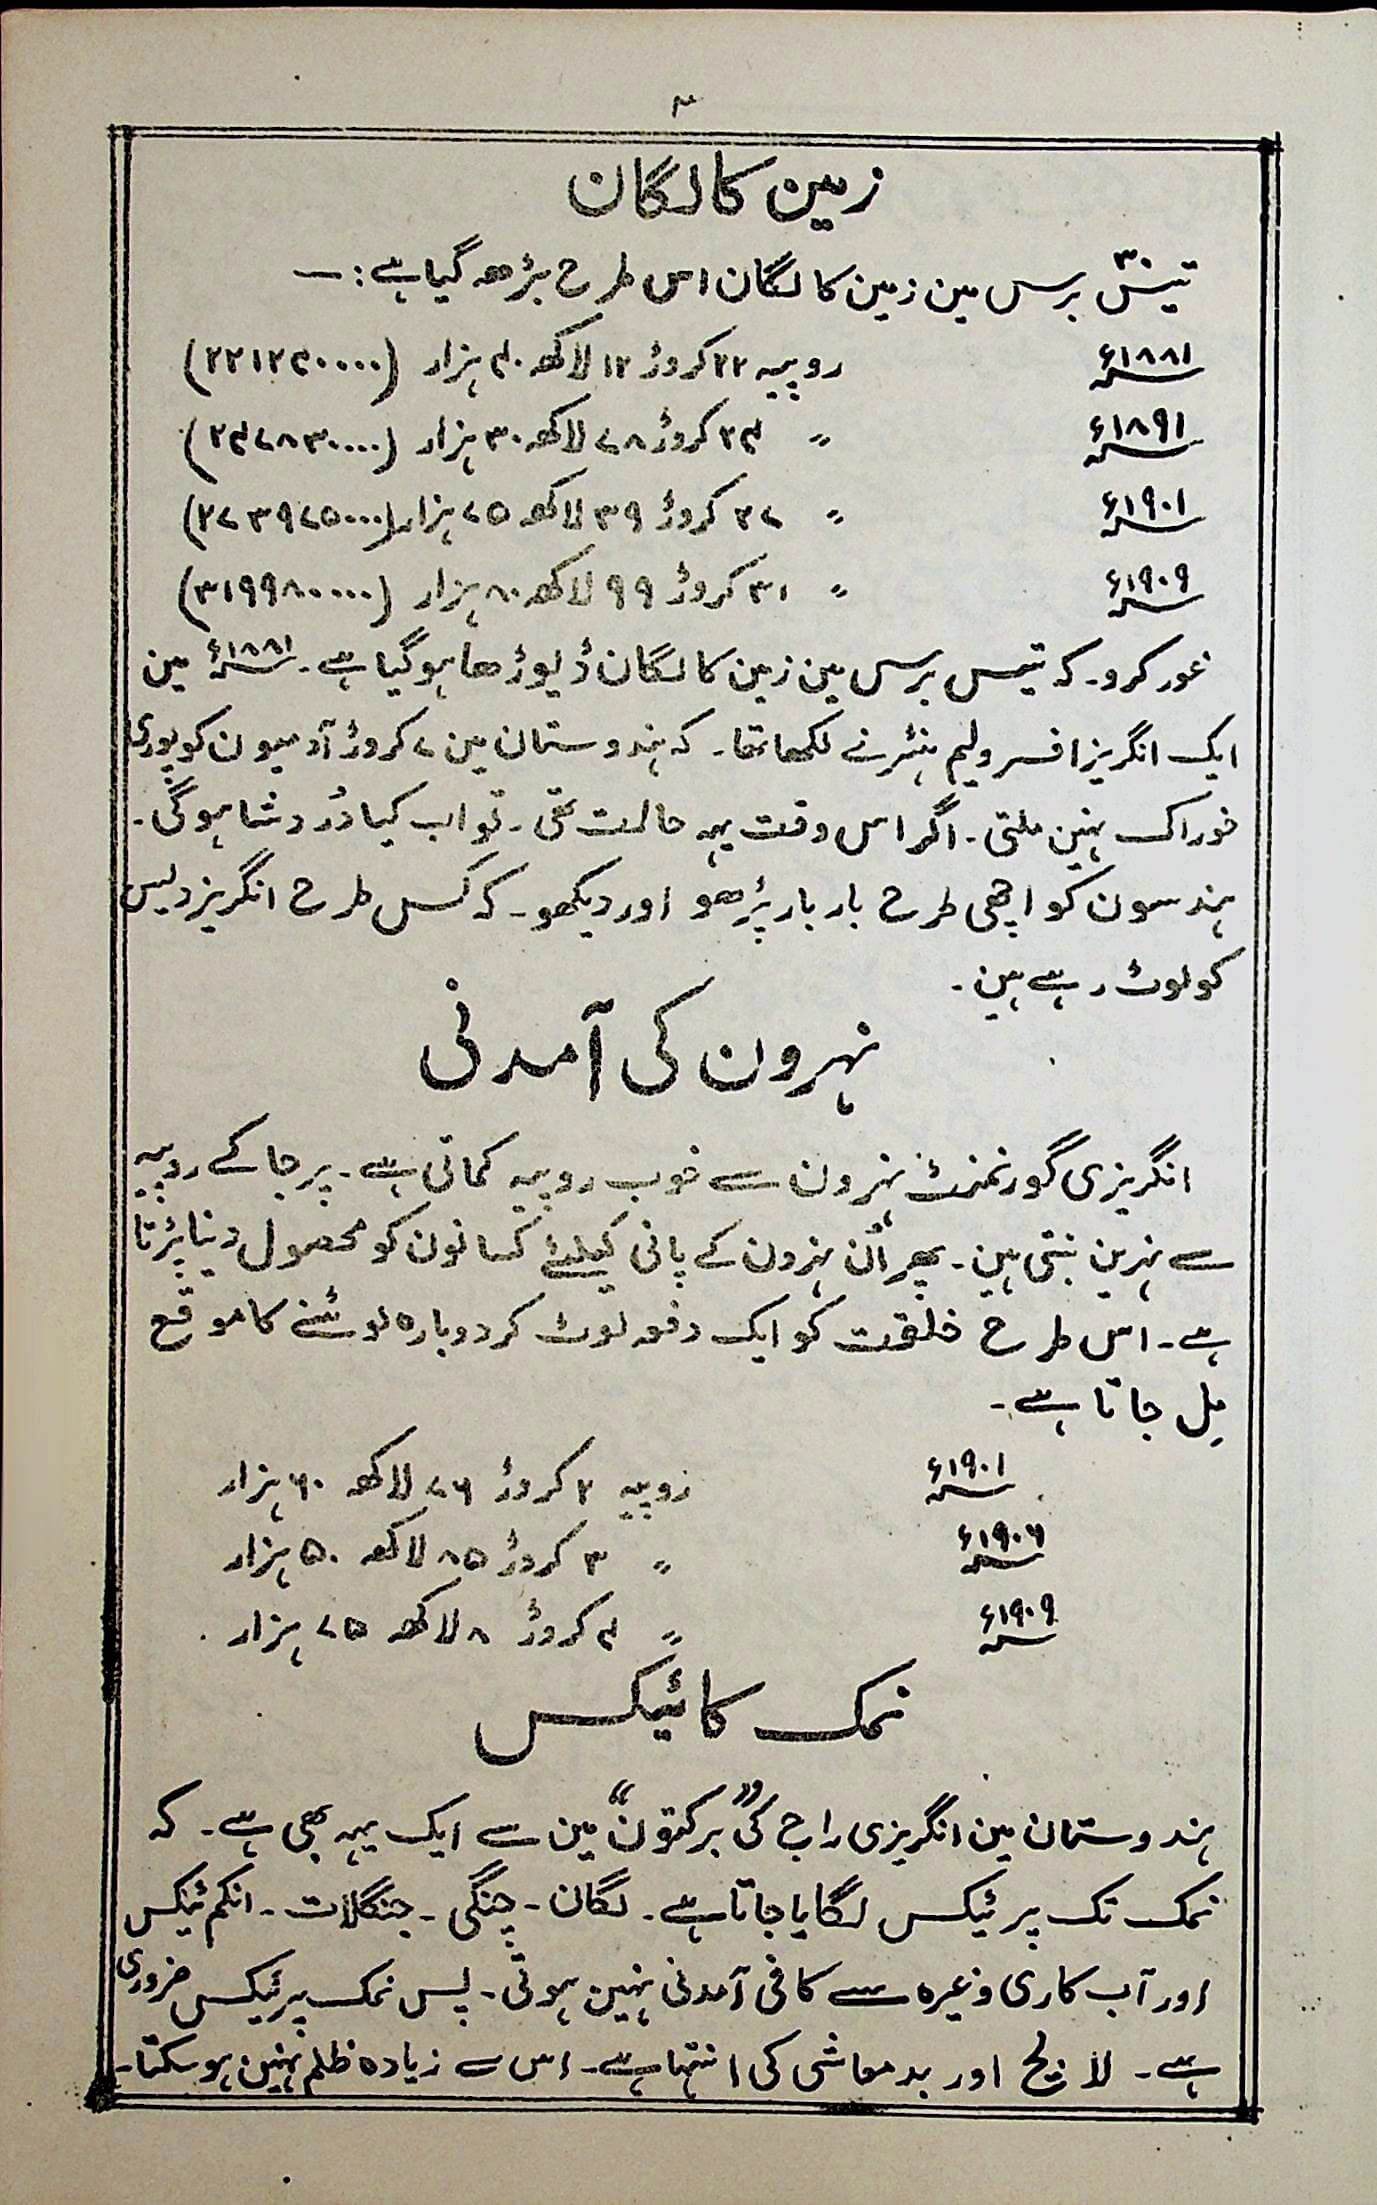 ۳
زمین کا لگان
تیس۳۰ برس مین زمین کا لگان اس طرح بڑھ گیا ہے :—
۱۸۸۱ء روپیہ ۲۲ کروڑ ۱۲ لاکھ ۴۰ ہزار (۲۲۱۲۴۰۰۰۰)
۱۸۹۱ء 〃 ۲۴ کروڑ ۷۸ لاکھ ۳۰ ہزار (۲۴۷۸۳۰۰۰۰)
۱۹۰۱ء 〃 ۲۷ کروڑ ۳۹ لاکھ ۷۵ ہزار (۲۷۳۹۷۵۰۰۰)
۱۹۰۹ء 〃 ۳۱ کروڑ ۹۹ لاکھ ۸۰ ہزار (۳۱۹۹۸۰۰۰۰)
غور کرو۔ کہ تیس برس مین زمین کا لگان ڈیوڑھا ہوگیا ہے۔ ۱۸۸۱ء مین
ایک انگریز افسر ولیم ہنٹر نے لکھا تھا۔ کہ ہندوستان مین ۷ کروڑ آدمیون کو پوری
خوراک نہین ملتی۔ اگر اس وقت یہہ حالت تھی۔ تو اب کیا دُردشا ہوگی۔
ہندسون کو اچھی طرح بار بار پڑھو اور دیکھو۔ کہ کس طرح انگریز دیس
کو لوٹ رہے ہین۔
نہرون کی آمدنی
انگریزی گورنمنٹ نہرون سے خوب روپیہ کماتی ہے۔ پرجا کے روپیہ
سے نہرین بنتی ہین۔ پھر اُن نہرون کے پانی کیلئے کسانون کو محصول دینا پڑتا
ہے۔ اس طرح خلقت کو ایک دفعہ لوٹ کر دوبارہ لوٹنے کا موقع
مِل جاتا ہے۔
۱۹۰۱ء روپیہ ۲ کروڑ ۷۶ لاکھ ۶۰ ہزار
۱۹۰۶ء 〃 ۳ کروڑ ۸۵ لاکھ ۵۰ ہزار
۱۹۰۹ء 〃 ۴ کروڑ ۸ لاکھ ۷۵ ہزار
نمک کا ٹیکس
ہندوستان مین انگریزی راج کی ”برکتون“ مین سے ایک یہہ بھی ہے۔ کہ
نمک تک پر ٹیکس لگایا جاتا ہے۔ لگان۔ چنگی۔ جنگلات۔ انکم ٹیکس
اور آب کاری وغیرہ سے کافی آمدنی نہین ہوتی۔ پس نمک پر ٹیکس ضروری
ہے۔ لالچ اور بدمعاشی کی انتہا ہے۔ اس سے زیادہ ظلم نہین ہوسکتا۔